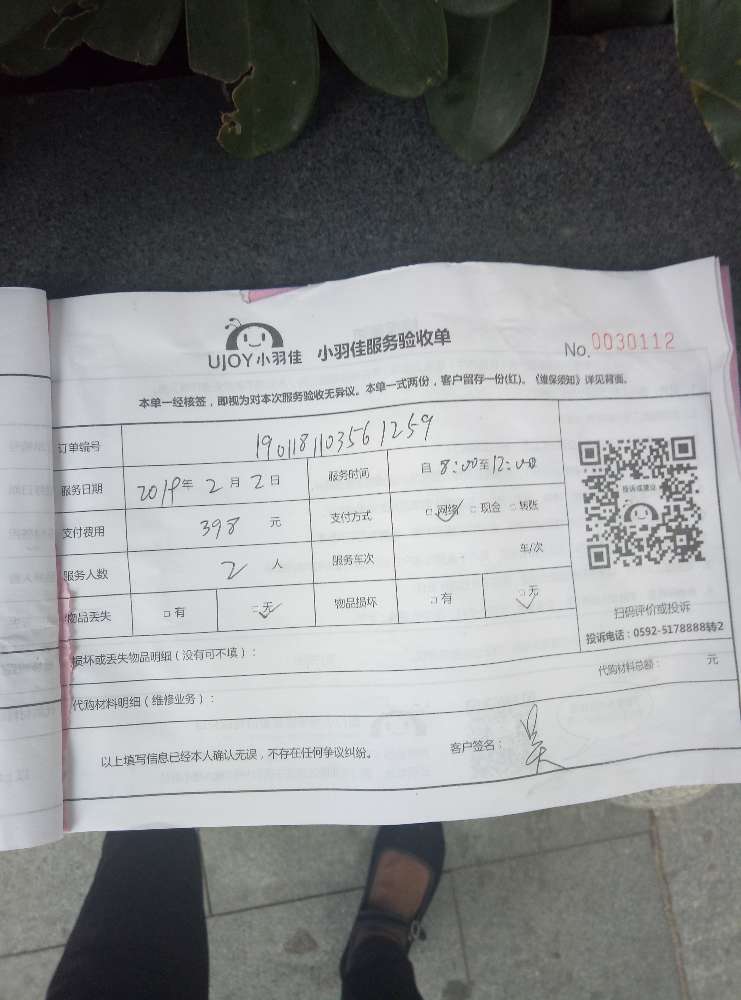 UJOY小羽佳 小羽佳服务验收单 No. 0030112
本单一经核签，即视为对本次服务验收无异议。本单一式两份，客户留存一份(红)。《维保须知》详见背面。
订单编号 190118110356 1259
服务日期 2019年 2月 2日 服务时间 自 8:00至 12:00
支付费用 398 元 支付方式 □网络 □现金 □转账
服务人数 2 人 服务车次 车/次
物品丢失 □有 □无 物品损坏 □有 □无
投诉或建议
扫码评价或投诉
投诉电话：0592-5178888转2
损坏或丢失物品明细（没有可不填）：
代购材料明细（维修业务）： 代购材料总额： 元
以上填写信息已经本人确认无误，不存在任何争议纠纷。 客户签名： 吴